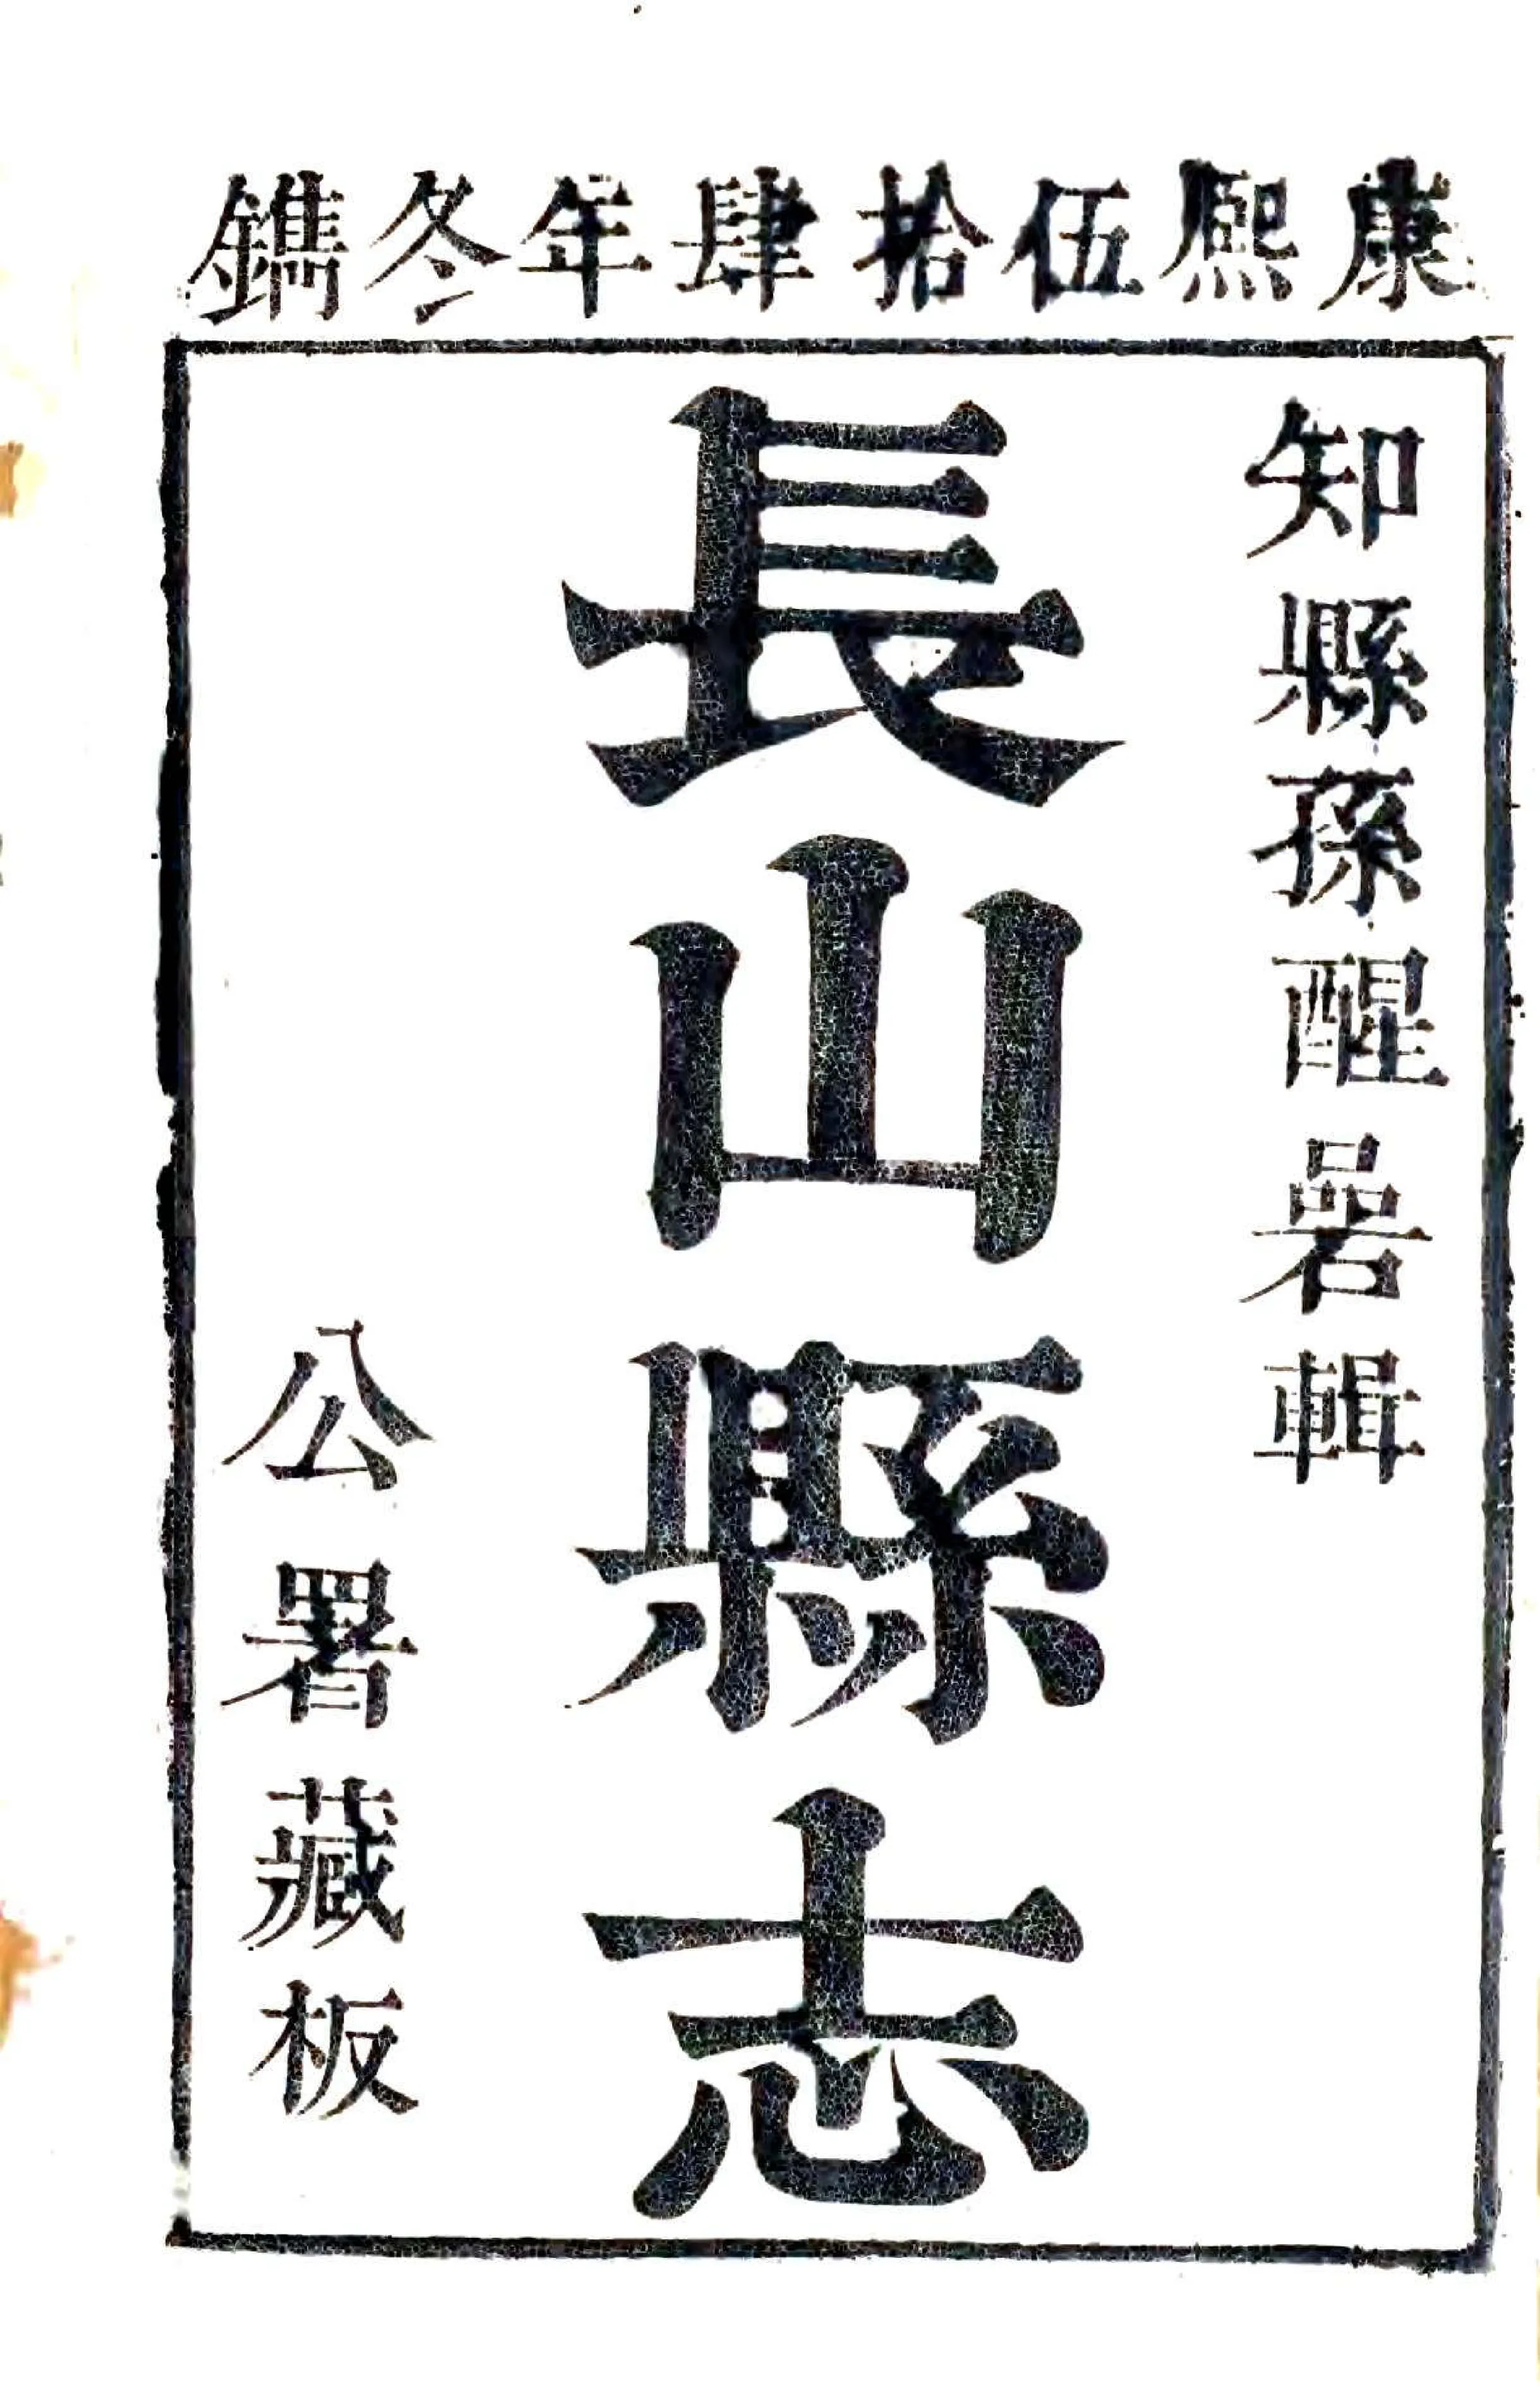 康熙伍拾肆年冬鐫
知縣蓀醒碞輯
長山縣志
公署藏板